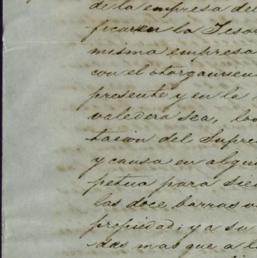 de la empresa del
ficaren la Teso
misma empresa
con el otorgamien
presente y en la
valedera sea, los
tacion del Supre
y causa en algun
petua para sie
las doce barras
propiedad; ya su
das mas que a l